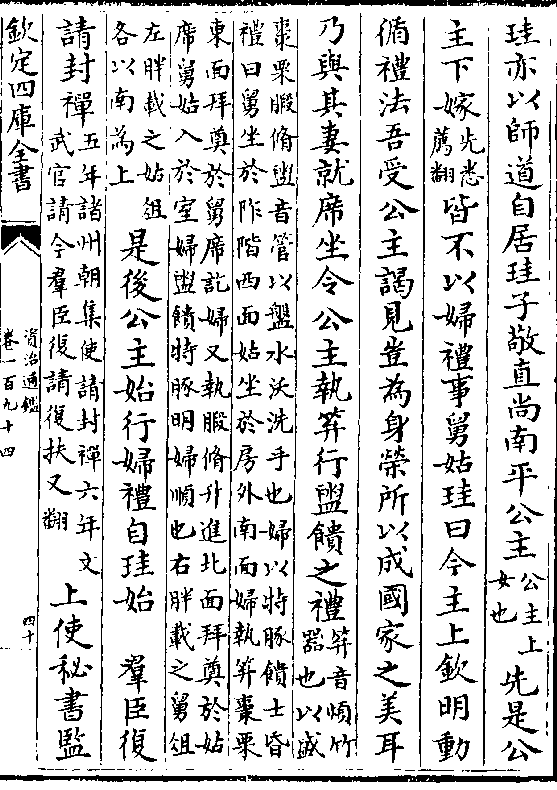 珪亦以師道自居珪子敬直尚南平公主公主上女也先是公
主下嫁先悉薦翻皆不以婦禮事舅姑珪曰今主上欽明動
循禮法吾受公主謁見豈為身榮所以成國家之美耳
乃與其妻就席坐令公主執笲行盥饋之禮笲音煩竹器也以盛
棗栗腶脩盥音管以盤水沃洗手也婦以特豚饋士昏
禮曰舅坐於阼階西面姑坐於房外南面婦執笲棗栗
東面拜奠於舅席訖婦又執腶脩升進北面拜奠於姑
席舅姑入於室婦盥饋特豚明婦順也右胖載之舅俎
左胖載之姑俎各以南為上是後公主始行婦禮自珪始 羣臣復
請封禪五年諸州朝集使請封禪六年文武官請今羣臣復請復扶又翻上使秘書監
欽定四庫全書
資治通鑑
卷一百九十四
四十